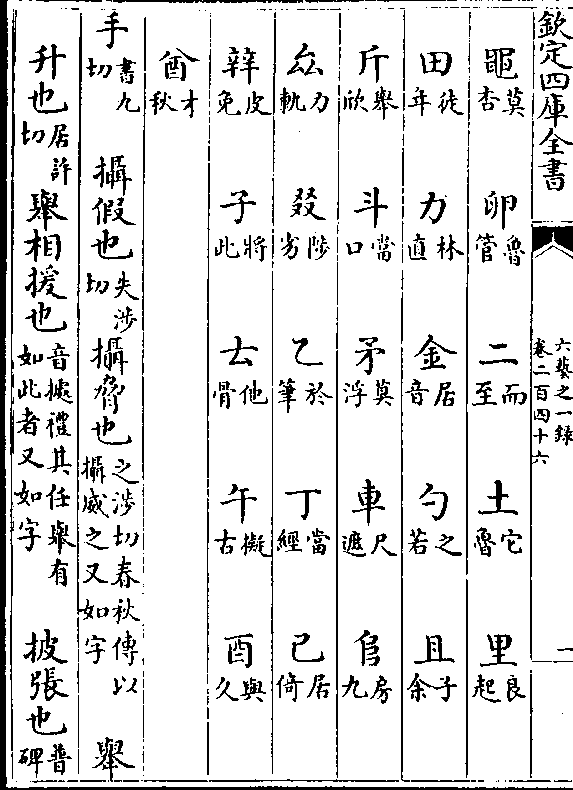 欽定四庫全書
六藝之一錄
卷二百四十六
一
黽莫杏 卵魯管 二而至 土它魯 里良起
田徒年 力林直 金居音 勺之若 且子余
斤舉欣 斗當口 矛莫浮 車尺遮 𨸏房九
厽力軌 叕陟劣 乙於筆 丁當經 己居倚
辡皮免 子將此 𠫓他骨 午擬古 酉與久
酋才秋
手書九切 攝假也失涉切 攝脅也之涉切春秋傳以攝威之又如字 舉
升也居許切 舉相援也音據禮其任舉有如此者又如字 披張也普碑